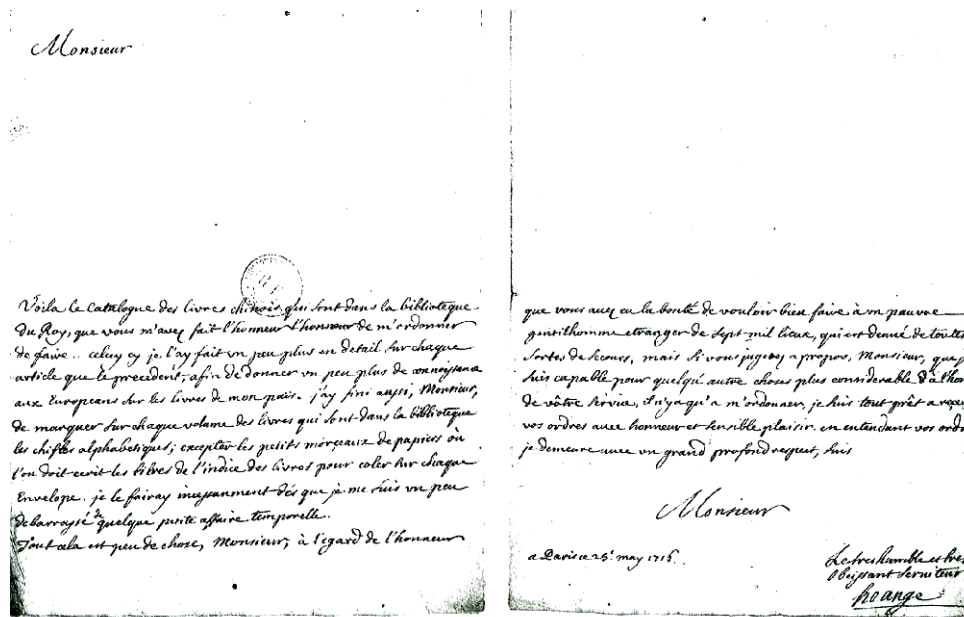 Monsieur
Voila le catalogue des livres chinois qui sont dans la biblioteque
du Roy, que vous m'avez fait l'honneur l'honneur de m'ordonner
de faire.. celuy cy je l'ay fait un peu plus en detail sur chaque
article que le precedent, afin de donner un peu plus de connoissance
aux Europeans sur les livres de mon païs. j'ay fini aussi, Monsieur,
de marquer sur chaque volume des livres qui sont dans la biblioteque
les chifres alphabetiques; excepter les petits morceaux de papiers où
l'on doit ecrit les titres de l'indice des livres pour coler sur chaque
Envelope. je le fairay incessanment dés que je me suis un peu
debarrassé de quelque petite affaire temporelle.
Tout cela est peu de chose, Monsieur, à l'egard de l'honneur
que vous avez eu la bonté de vouloir bien faire à un pauvre
gentilhomme etranger de sept mil lieux, qui est denué de toutes
sortes de secours, mais si vous jugez a propos, Monsieur, que
suis capable pour quelqu'autre choses plus considerable d'à
de vôtre service, il n'y a qu'a m'ordonner, je suis tout prêt a
vos ordres avec honneur et sensible plaisir. en entendant vos
je demeure avec un grand profond respect, suis
Monsieur
a Paris ce 25. may 1716.
Le tres humble et tres
Obeissant serviteur
hoange